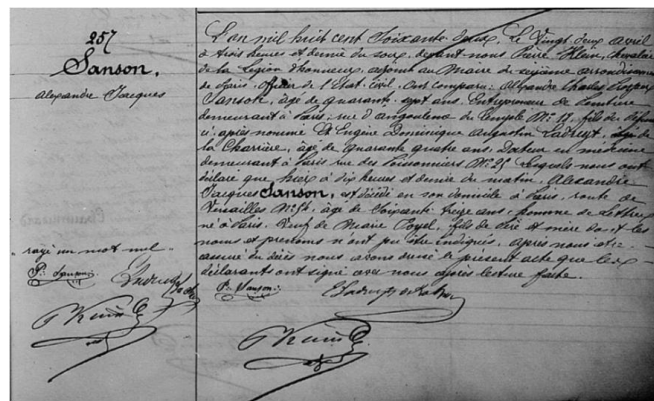 257
Sanson,
Alexandre Jacques
rayé un mot nul
L'an mil huit cent Soixante-deux, Le Vingt deux avril
à trois heures et demie du soir, devant nous Pierre Klein, chevalier
de la Légion d'honneur, adjoint au Maire du seizième arrondissement
de Paris, officier de l'Etat-Civil, ont comparu: Alexandre Charles
Sanson, âgé de quarante sept ans, Entrepreneur de
demeurant à Paris, rue d'angoulême du Temple No. 19, fils du défunt
ci-après nommé Et Eugène Dominique Augustin
de la Charrière, âgé de quarante quatre ans, Docteur en médecine
demeurant à Paris rue des No. 25 Lesquels nous ont
déclaré que hier à dix heures et demie du matin, Alexandre
Jacques Sanson, est décédé en son domicile à Paris, route de
Versailles No. âgé de Soixante treize ans, homme de lettres
né à Paris, Veuf de Marie fils de père et mère dont les
noms et prénoms n'ont pu être indiqués. Après nous être
assuré du décès nous avons dressé le présent acte que les
déclarants ont signé avec nous après lecture faite.
Sanson